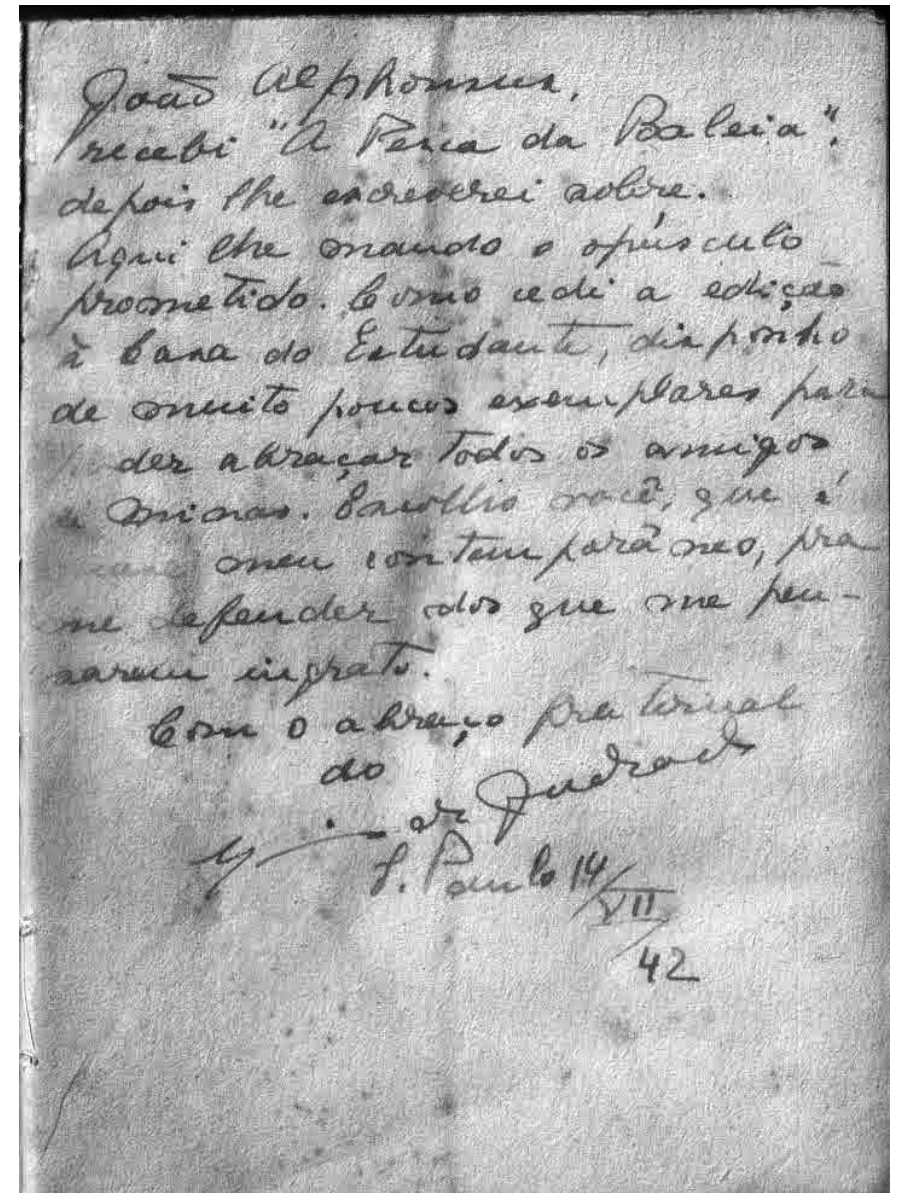 João Alphonsus,
recebi "A Pesca da Baleia",
depois lhe escreverei sobre.
Aqui lhe mando o opúsculo
prometido. Como cedi a edição
à Casa do Estudante, disponho
de muito poucos exemplares para
der abraçar todos os amigos
Minas. Escolho você, que é
meu contemporâneo, pra
me defender dos que me pen-
sarem ingrato.
Com o abraço fraternal
do
de Andrade
S. Paulo 14/
VII/
42